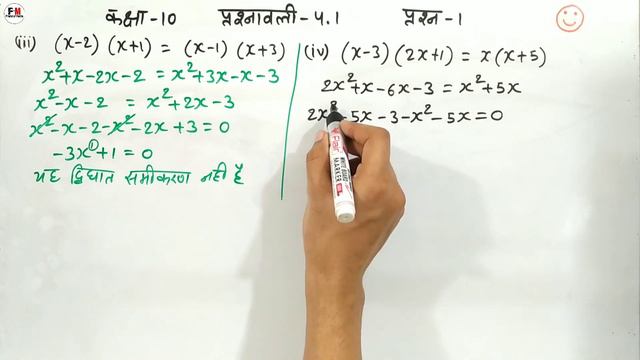 कक्षा-10 प्रश्नावली-4.1 प्रश्न-1
(iii) (x-2) (x+1) = (x-1) (x+3)
x²+x-2x-2 = x²+3x-x-3
x²-x-2 = x²+2x-3
x²-x-2-x²-2x+3=0
-3x¹+1=0
यह द्विघात समीकरण नहीं है
(iv) (x-3) (2x+1) = x(x+5)
2x²+x-6x-3 = x²+5x
2x²-5x-3-x²-5x=0
FM